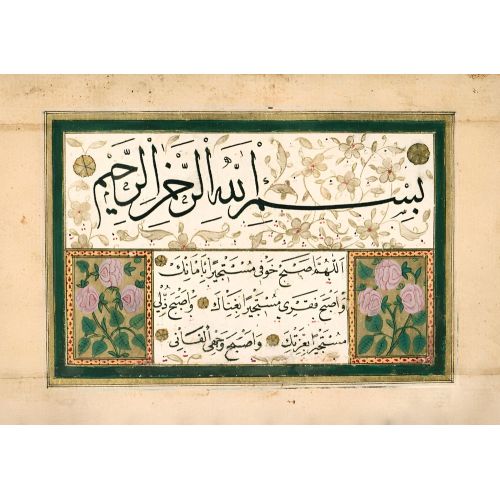 بسم الله الرحمن الرحيم
اللهم اصبح خوفى مستجيرا بامانك
واصبح فقرى مستجيرا بغناك واصبح ذلى
مستجيرا بعزتك واصبح وجهى الفانى